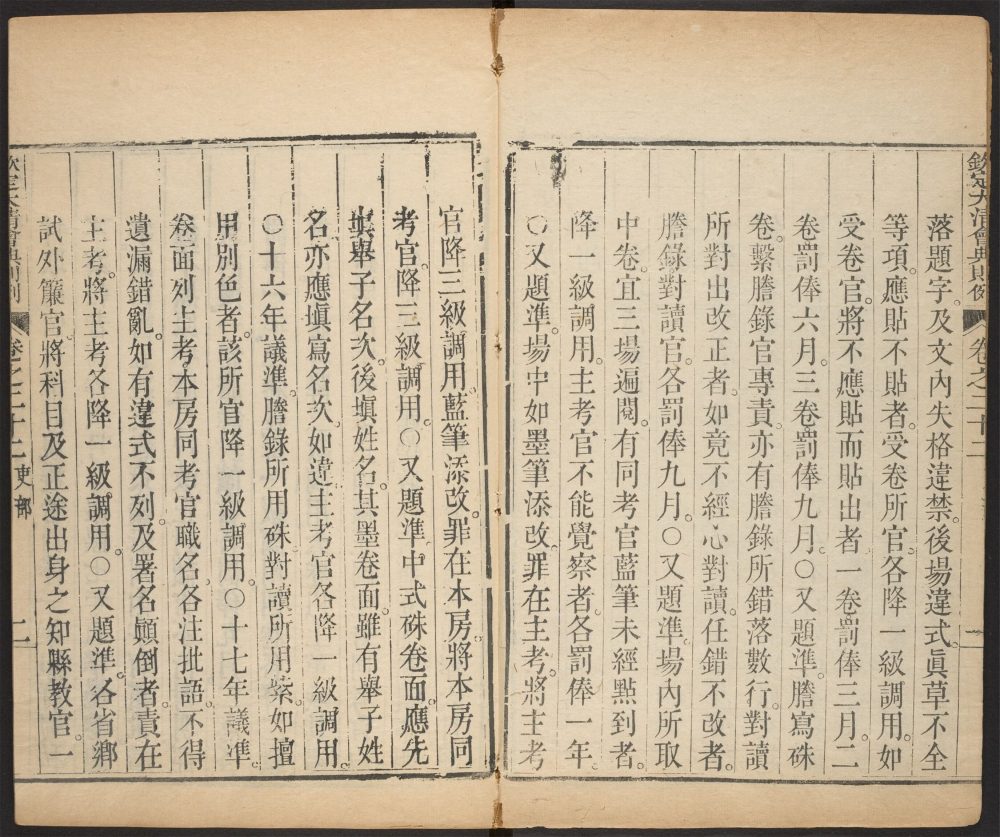 欽定大清會典則例 卷之二十二 一
落題字及文內失格違禁。後場違式。眞草不全
等項。應貼不貼者。受卷所官各降一級調用。如
受卷官將不應貼而貼出者。一卷罰俸三月。二
卷罰俸六月。三卷罰俸九月。○又題準。謄寫硃
卷。繫謄錄官專責。亦有謄錄所錯落數行。對讀
所對出改正者。如竟不經心對讀。任錯不改者。
謄錄對讀官。各罰俸九月。○又題準。場內所取
中卷。宜三場遍閱。有同考官藍筆未經點到者。
降一級調用。主考官不能覺察者。各罰俸一年。
○又題準。場中如墨筆添改。罪在主考。將主考
官降三級調用。藍筆添改。罪在本房。將本房同
考官降三級調用。○又題準。中式硃卷面。應先
塡舉子名次。後塡姓名。其墨卷面。雖有舉子姓
名。亦應塡寫名次。如違。主考官各降一級調用。
○十六年議準。謄錄所用硃。對讀所用紫。如擅
用別色者。該所官降一級調用。○十七年議準。
卷面列主考本房同考官職名。各注批語。不得
遺漏錯亂。如有違式不列。及署名顚倒者。責在
主考。將主考各降一級調用。○又題準。各省鄉
試外簾官。將科目及正途出身之知縣敎官。一
欽定大清會典則例 卷之二十二 吏部 二